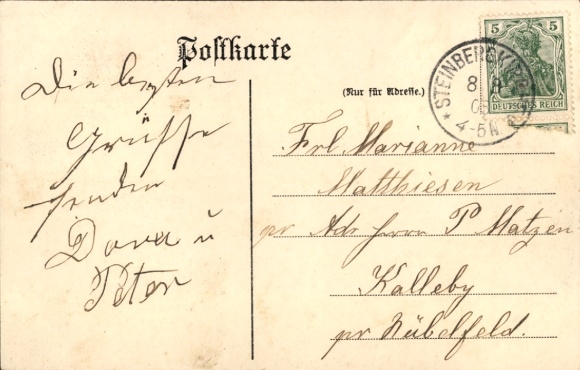 Postkarte
(Nur für Adresse.)
5 5
DEUTSCHES REICH
STEINBERGKIRCHE
8
4-5N
Die besten
Grüsse
senden
Dora u
Peter
Frl Marianne
Matthiesen
pr Adr Herrn P Matzen
Kalleby
pr Nübelfeld.